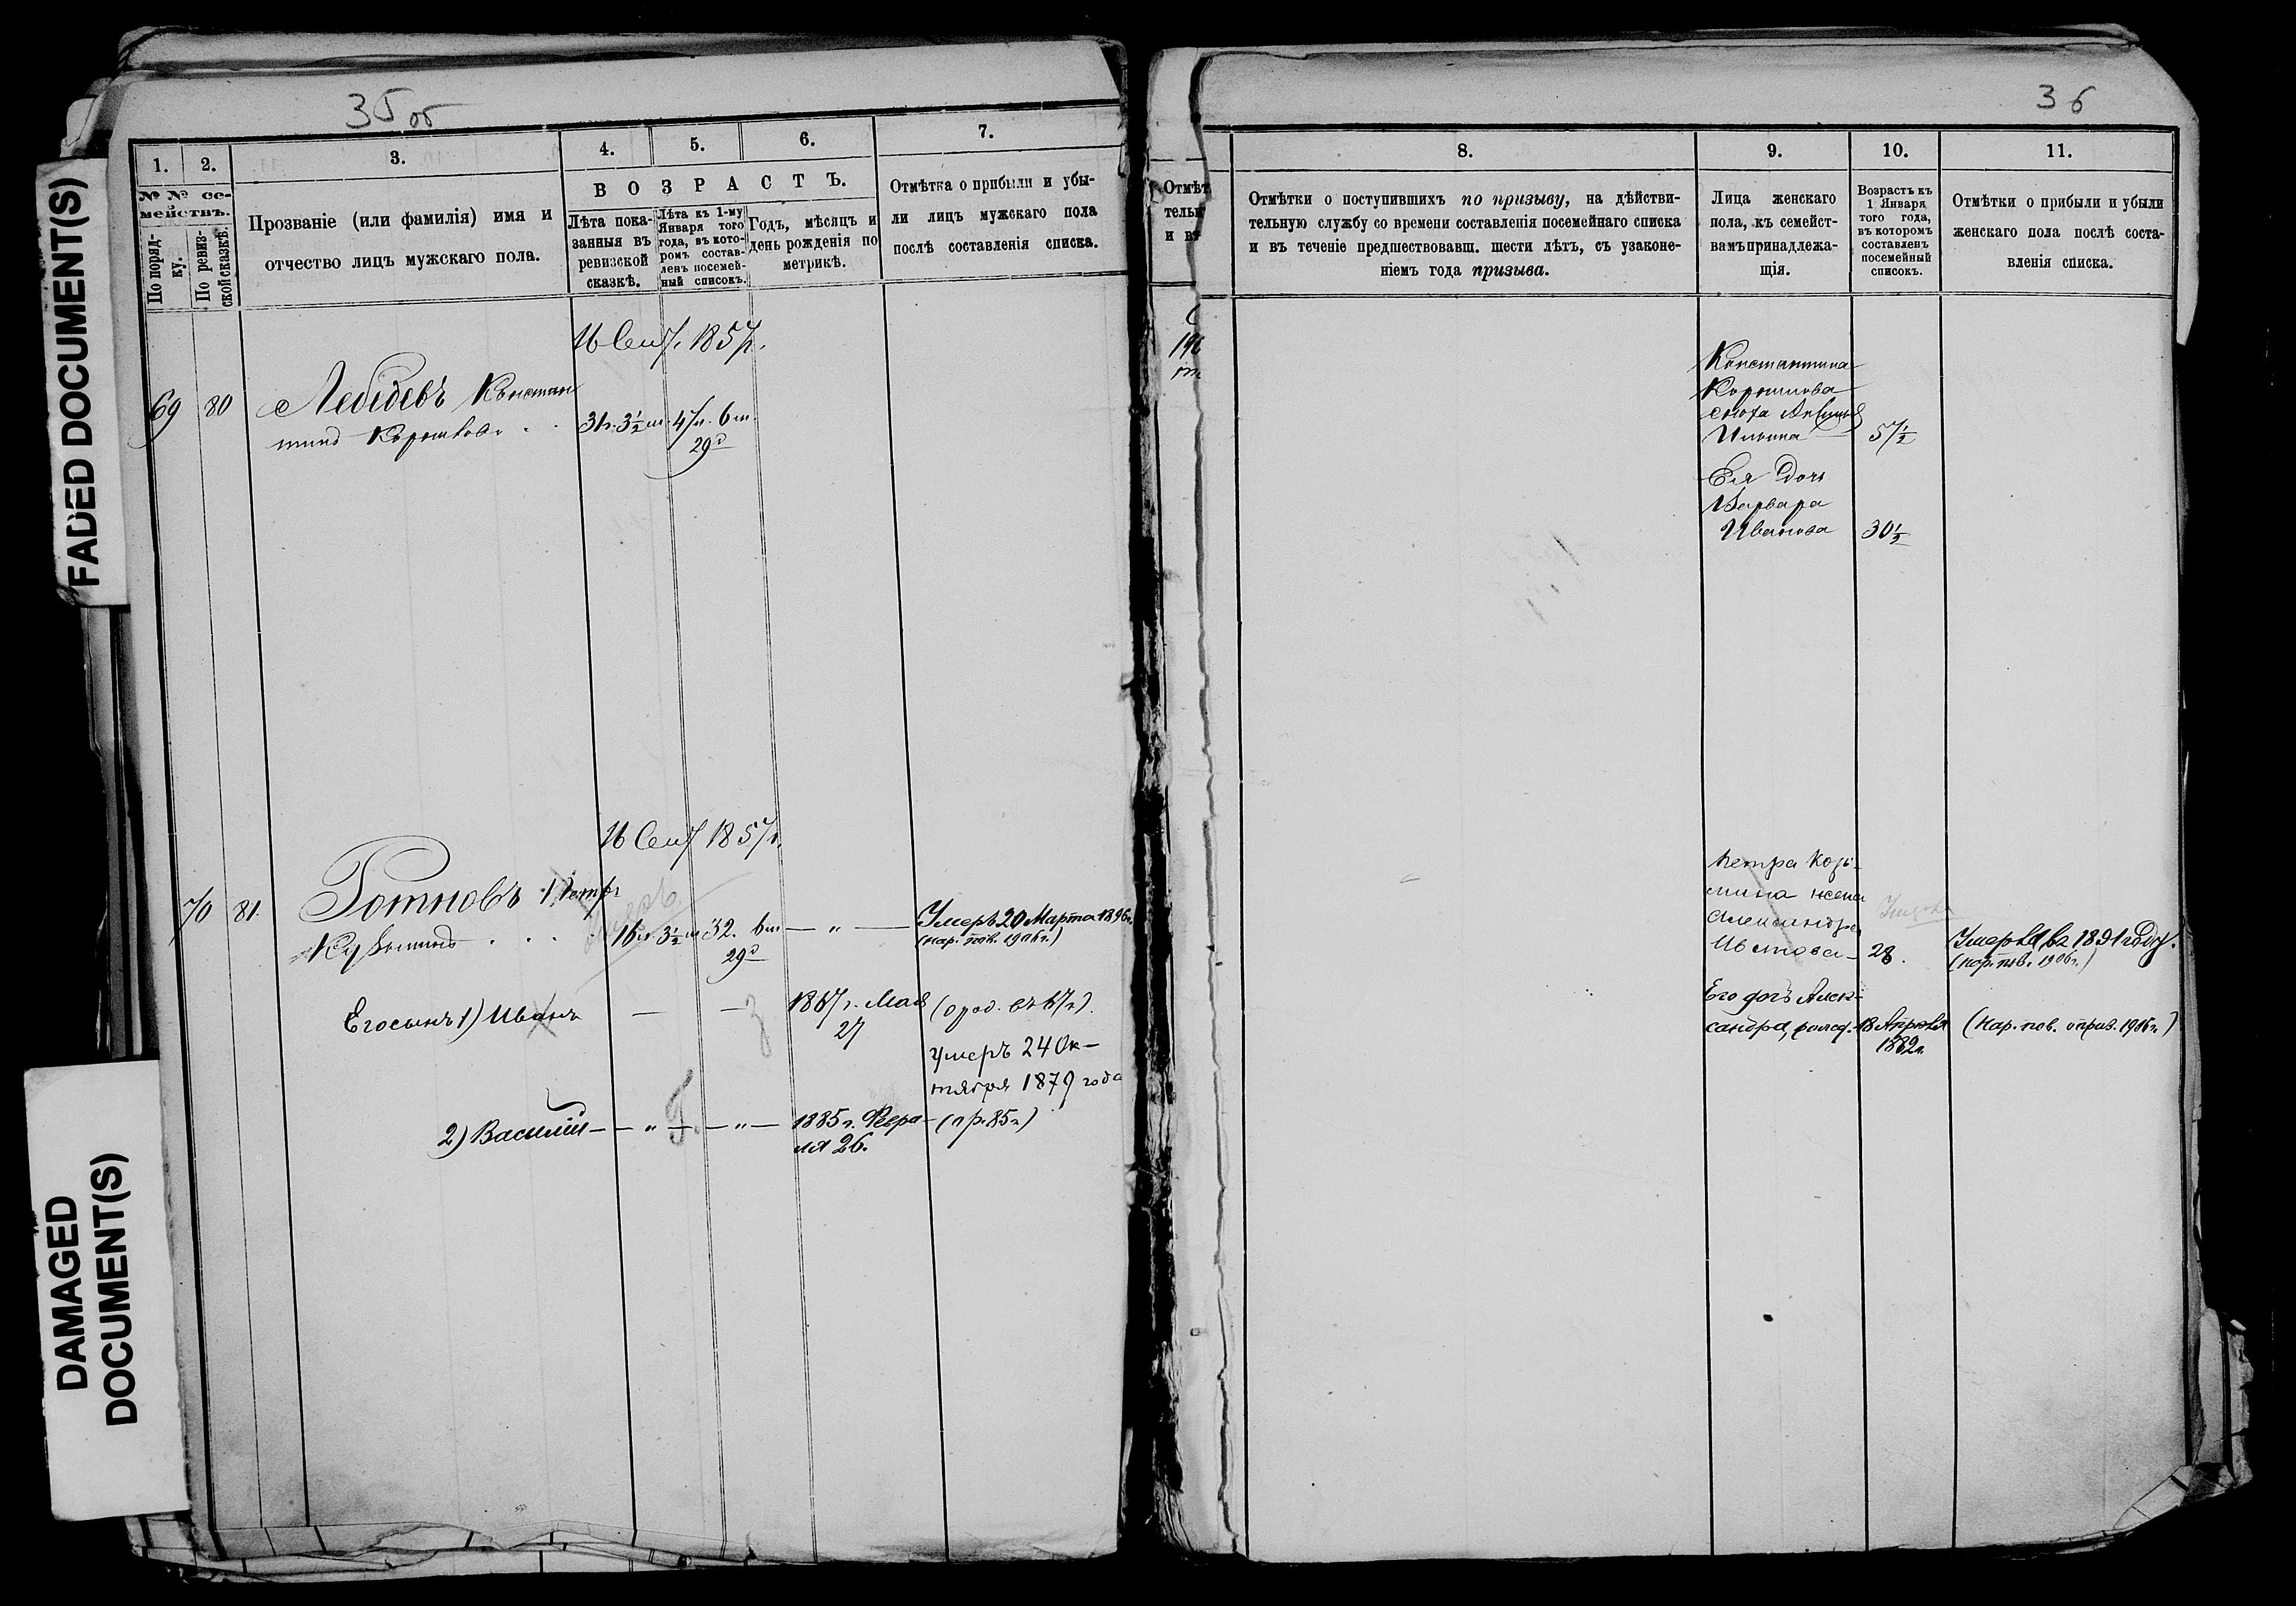 FADED DOCUMENT(S)
DAMAGED
DOCUMENT(S)
35 об
1.
2.
3.
4.
5.
6.
7.
№ № се-
мействъ.
По поряд-
ку.
По ревиз-
ской сказкѣ.
Прозваніе (или фамилія) имя и
отчество лицъ мужскаго пола.
ВОЗРАСТЪ.
Лѣта пока-
занныя въ
ревизской
сказкѣ.
Лѣта къ 1-му
Января того
года, въ кото-
ромъ состав-
ленъ посемей-
ный списокъ.
Годъ, мѣсяцъ и
день рожденія по
метрикѣ.
Отмѣтка о прибыли и убы-
ли лицъ мужскаго пола
послѣ составленія списка.
16 Сент. 1857г.
69 80 Лебедевъ Констан
31г. 3½ м. 47л. 6м.
29д
16 Сент 1857г.
70 81. Петръ
Кузьминъ
16л. 3½ м 32. 6м — „ — Умеръ 20 Марта 1896г.
29д
(нар. пов. 1906г.)
Его сынъ 1) Иванъ — — 1867г. Мая
27
(о род. въ 67г).
умеръ 24 Ок-
тября 1879 года
2) Василій — — „ — — „ — 1885г. Февра-
ля 26.
(пр. 85г)
36
Отмѣт
тельн
и въ
8.
9.
10.
11.
Отмѣтки о поступившихъ по призыву, на дѣйстви-
тельную службу со времени составленія посемейнаго списка
и въ теченіе предшествовавш. шести лѣтъ, съ узаконе-
ніемъ года призыва.
Лица женскаго
пола, къ семейст-
вамъ принадлежа-
щія.
Возрастъ къ
1 Января
того года,
въ которомъ
составленъ
посемейный
списокъ.
Отмѣтки о прибыли и убыли
женскаго пола послѣ соста-
вленія списка.
Константина
Ильина 57½
Ея дочь
Варвара
Иванова 30½
Петра Козь-
мина жена
Александра
28.
Умерла въ 1891 году.
(нар. пов. 1906г.)
Его дочь Алек-
сандра, 18 Апрѣля
1882г.
(нар. пов. справ. 1906г.)